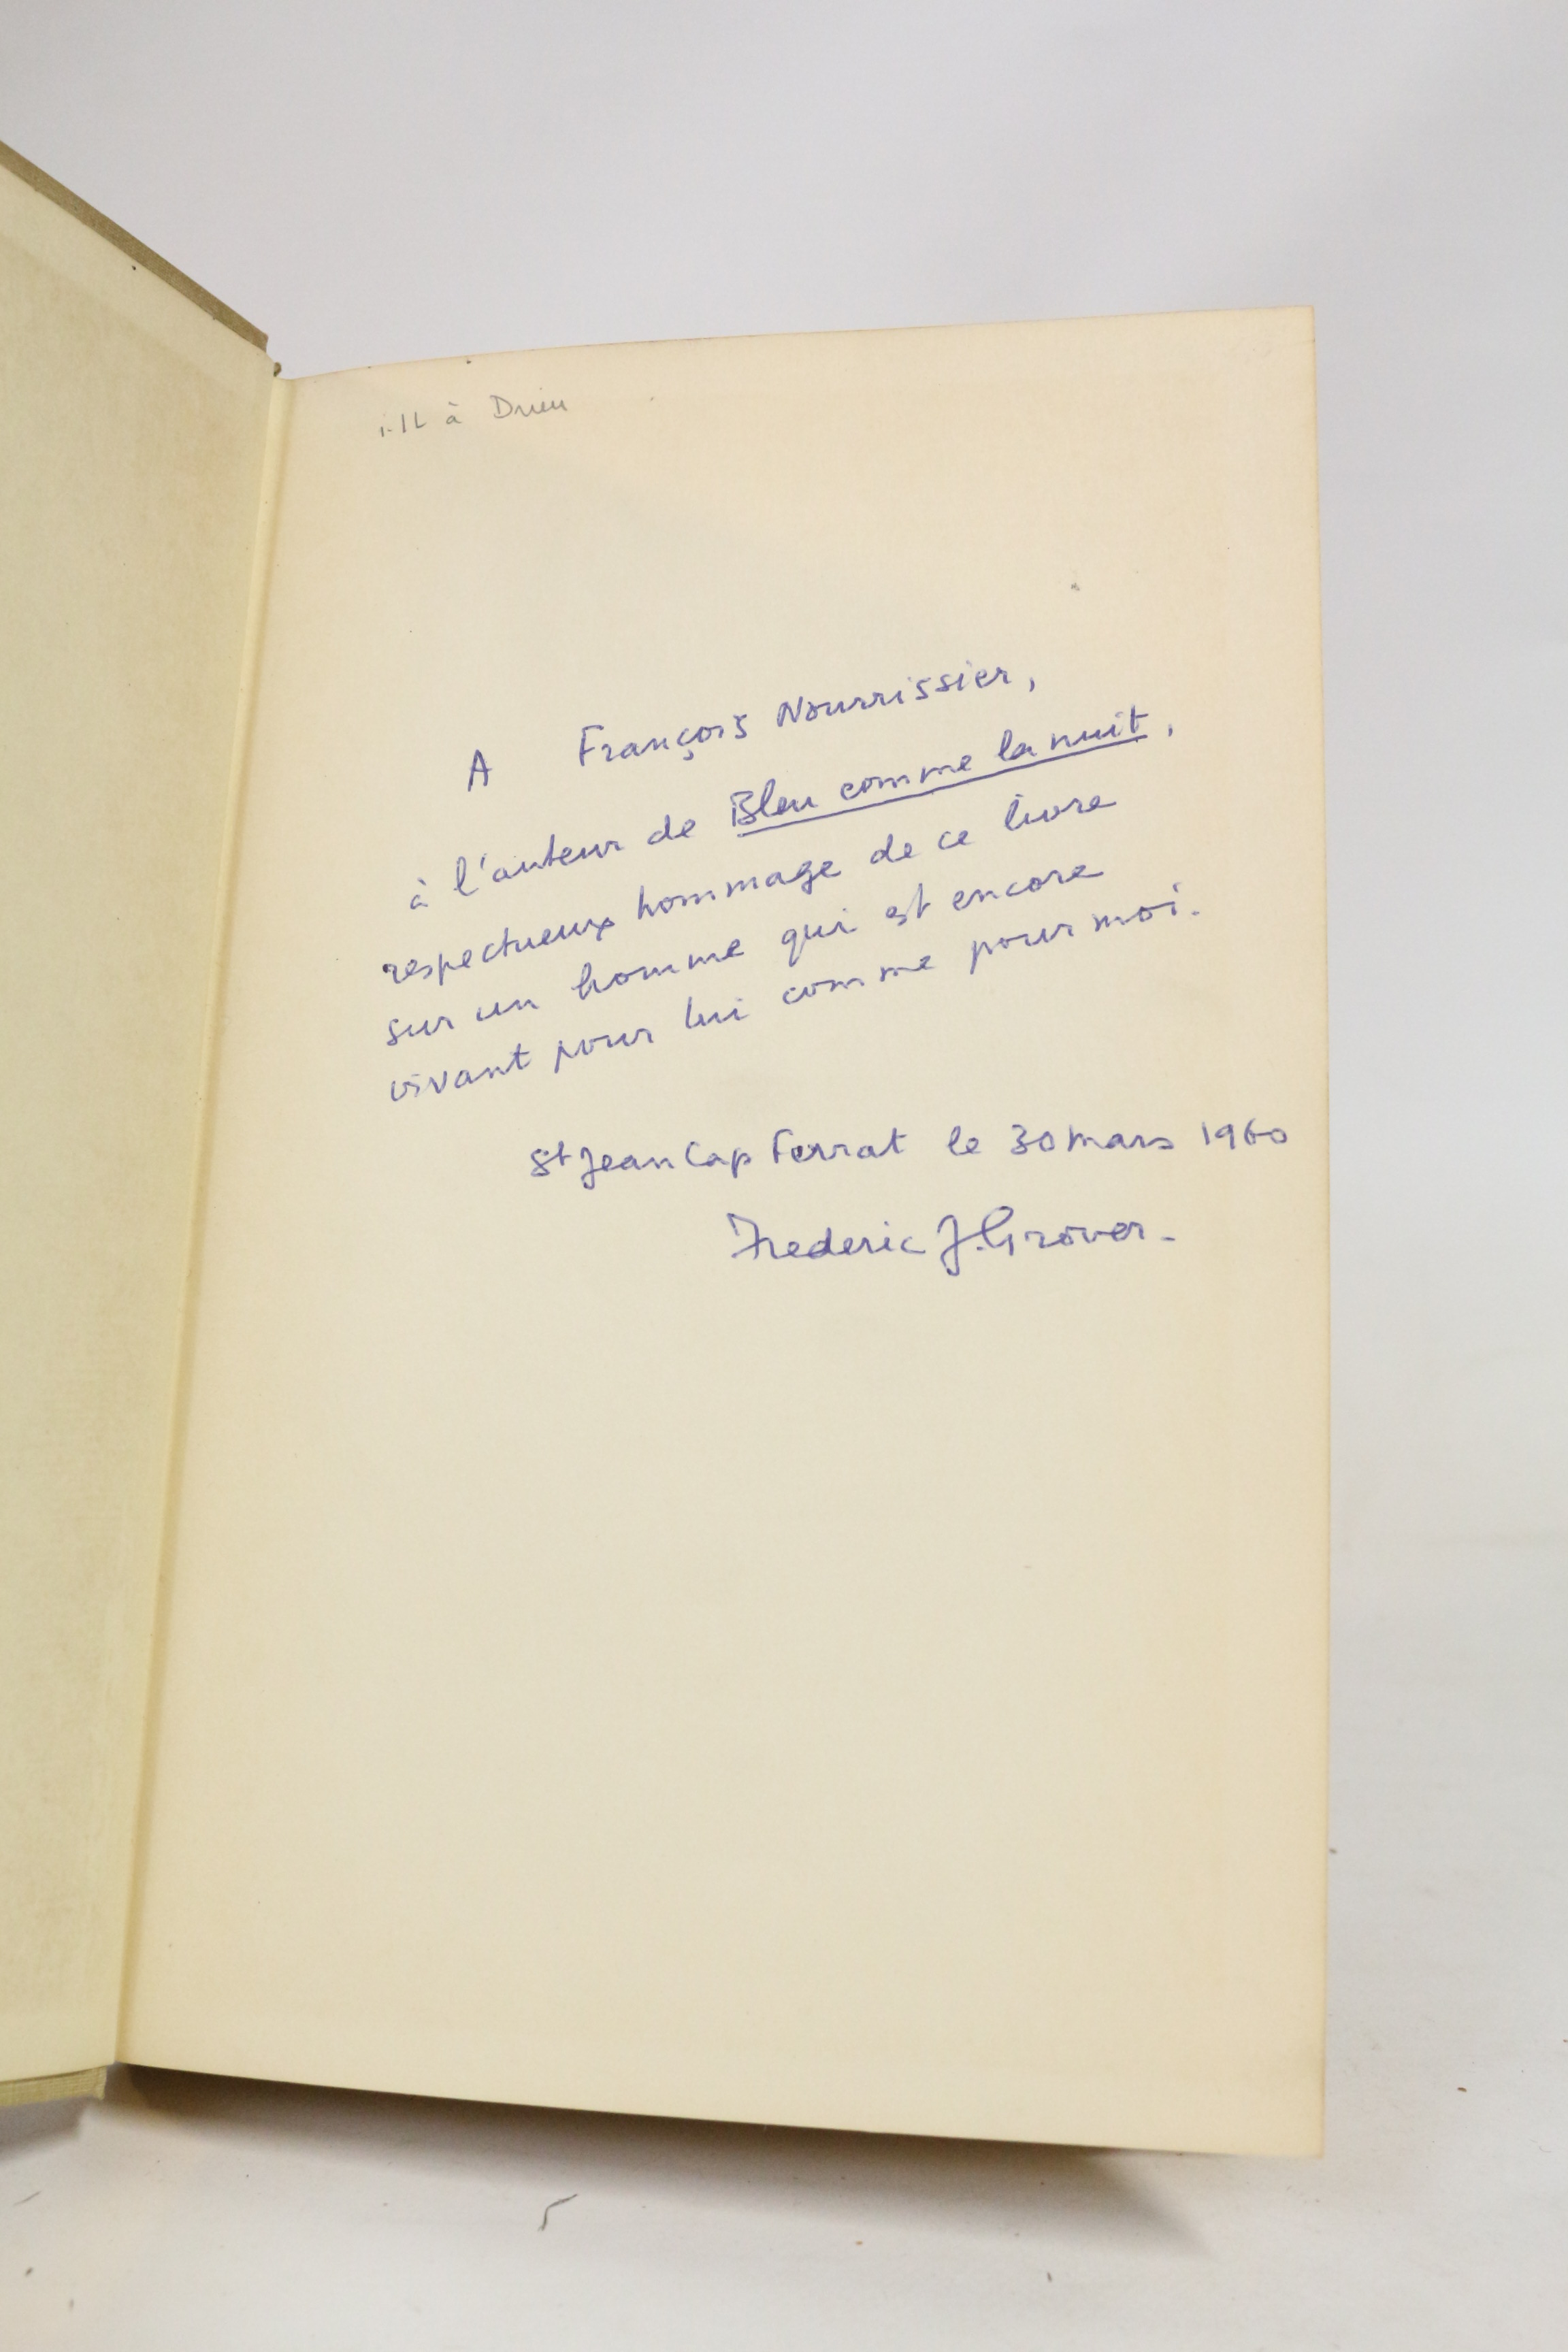 à Drieu
A François Nourrissier,
à l'auteur de Bleu comme la nuit,
respectueux hommage de ce livre
sur un homme qui est encore
vivant pour lui comme pour moi.
St Jean Cap Ferrat le 30 mars 1960
Frederic J. Grover.